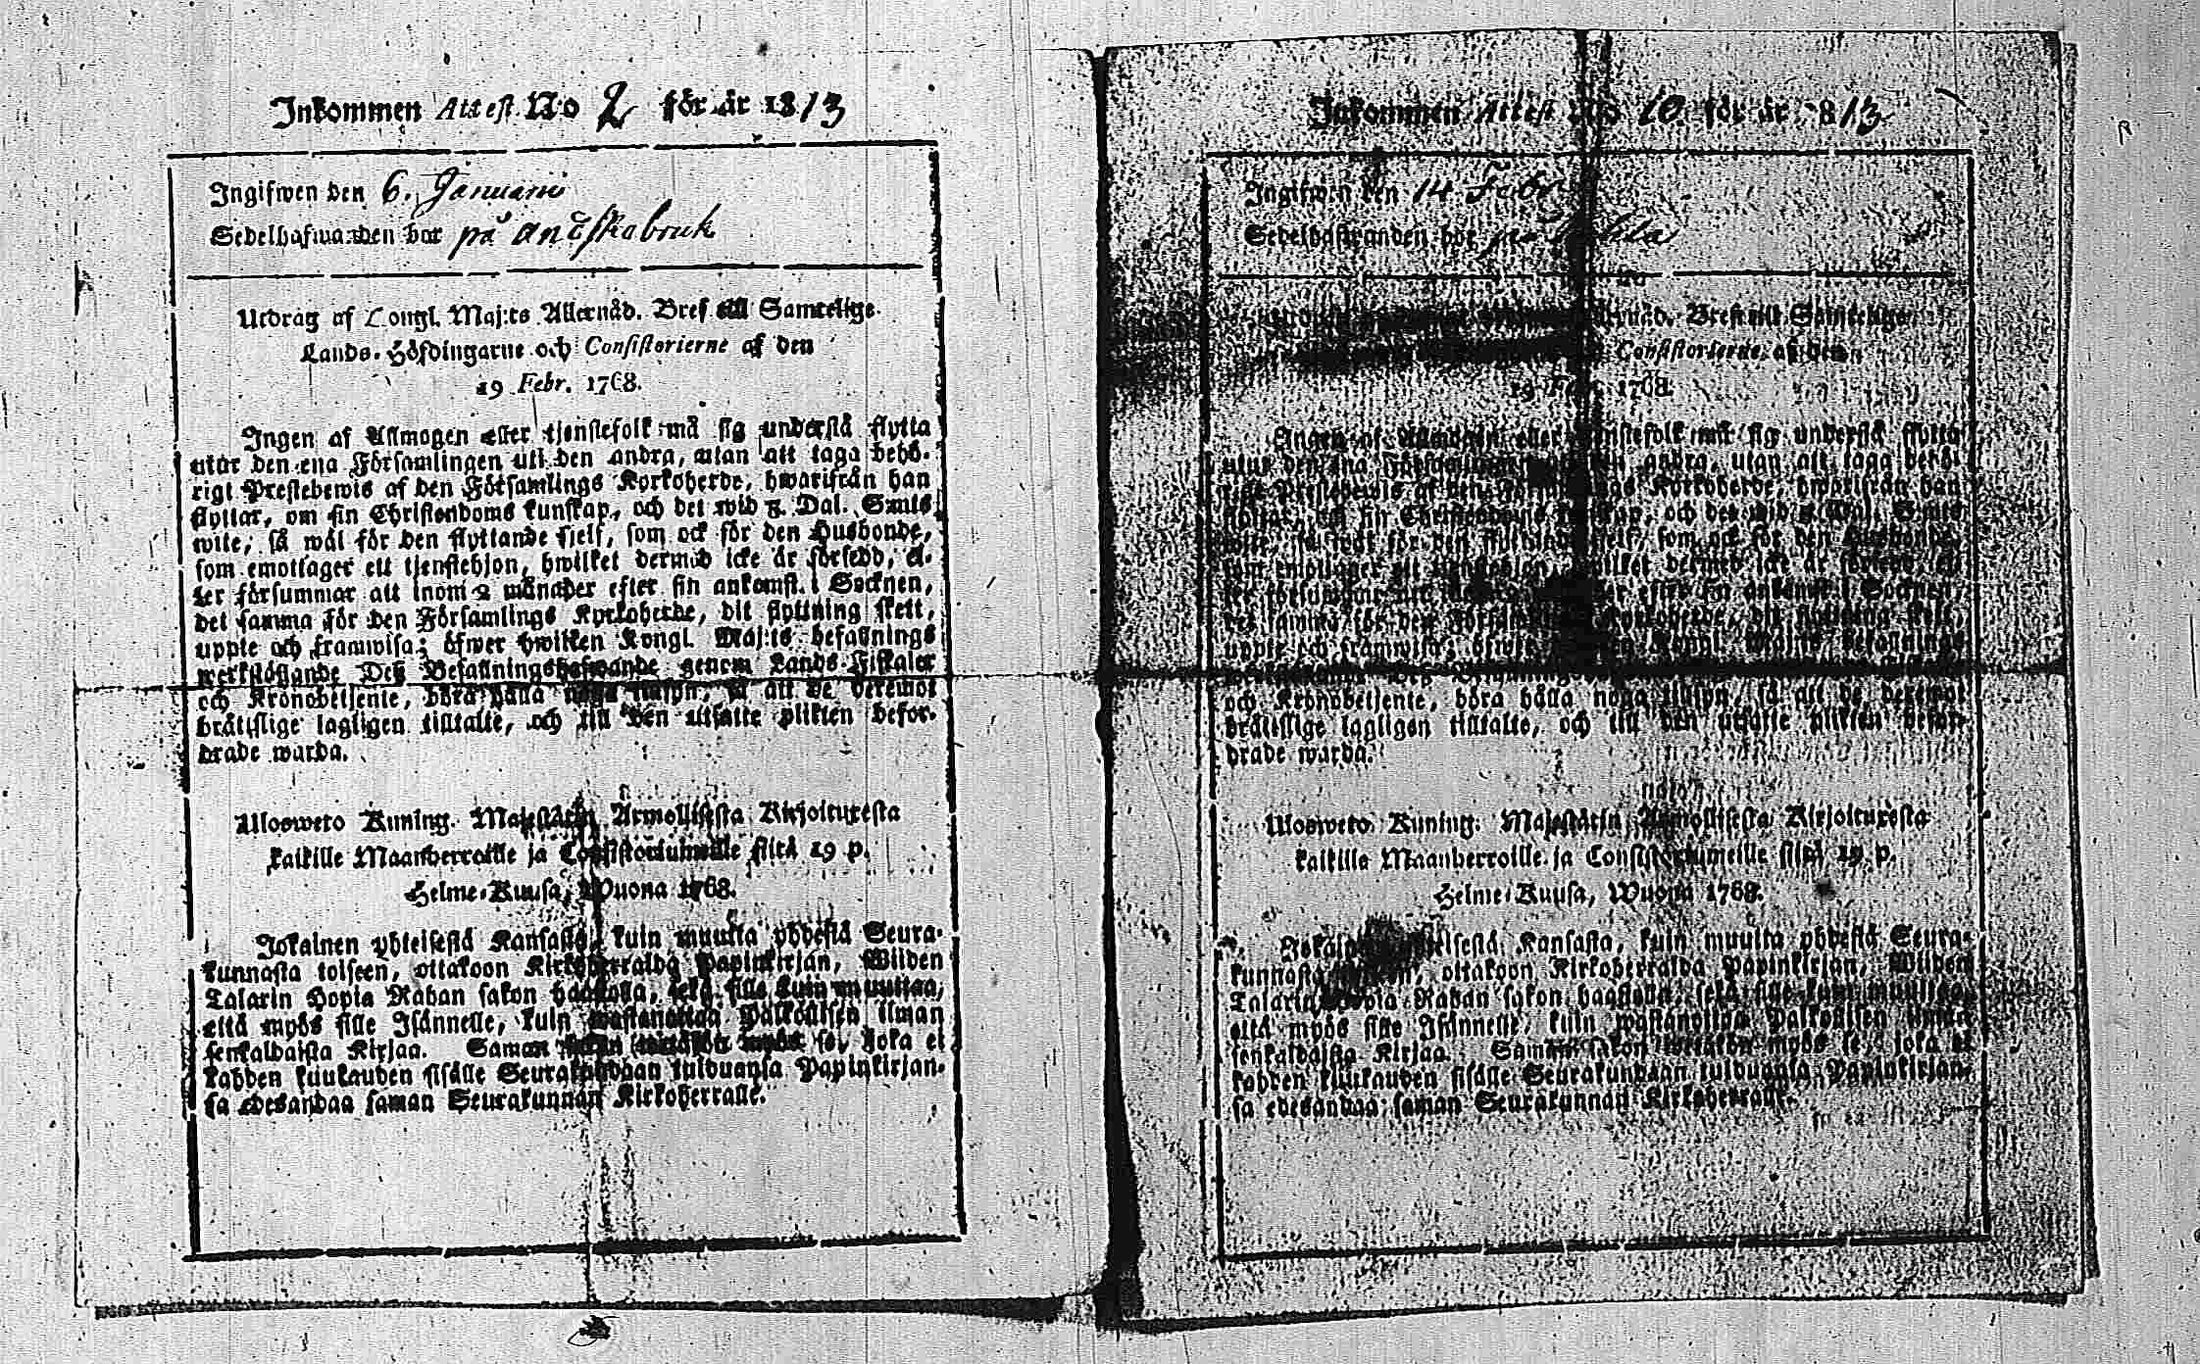 Inkommen Attest No 2 för år 1813
Ingifwen den 6. Januarii
Sedelhafwanden bor på
Utdrag af Kongl. Maj:ts Allernåd. Bref till Samtelige
Lands-Höfdingarne och Consistorierne af den
19 Febr. 1768.
Ingen af Allmogen eller tjenstefolk må sig understå flytta
utur den ena Församlingen uti den andra, utan att taga behö-
rigt Prestebewis af den Församlings Kyrkoherde, hwarifrån han
flyttar, om sin Christendoms kunskap, och det wid 2. Dal. S:mts
wite, så wäl för den flyttande sjelf, som ock för den Husbonde,
som emottager ett tjenstehjon, hwilket dermed icke är försedd, el-
ler försummar att inom 2 månader efter sin ankomst i Socknen,
det samma för den Församlings Kyrkoherde, dit flyttning skett,
uppte och framwisa; öfwer hwilken Kongl. Maj:ts befallnings
werkställande Deß Befallningshafwande genom Lands-Fiskaler
och Kronobetjente, böra hålla noga tillsyn, så att de deremot
bråttslige lagligen tilltalte, och till den utsatte plikten befor-
drade warda.
Ulosweto Kuning. Majestätin Armollisesta Kirjoituxesta
kaikille Maanherroille ja Consistoriumeille siitä 19 p.
Helme-Kuusa, Wuona 1768.
Jokainen yhteisestä Kansasta, kuin muutta yhdestä Seura-
kunnasta toiseen, ottakoon Kirkoherralda Papinkirjan, Wiiden
Talarin Hopia Rahan sakon haastolla, sekä sille kuin muuttaa,
että myös sille Isännelle, kuin wastanottaa Palkollisen ilman
senkaldaista Kirjaa. Saman sakon wetäkön myös se, joka ei
kahden kuukauden sisälle Seurakundaan tulduansa Papinkirjan-
sa edesandaa saman Seurakunnan Kirkoherralle.
Inkommen Attest No 10 för år 1813
Ingifwen den 14 Feb
Sedelhafwanden bor
Allernåd. Bref till Samtelige
Consistorierne af den
19 Febr. 1768.
Ingen af Allmogen eller tjenstefolk må sig understå flytta
utur den ena Församlingen uti den andra, utan att taga behö-
rigt Prestebewis af den Församlings Kyrkoherde, hwarifrån han
flyttar, om sin Christendoms kunskap, och det wid Dal. S:mts
wite, så wäl för den flyttande sjelf, som ock för den Husbonde,
som emottager ett tjenstehjon, hwilket dermed icke är försedd, el-
ler försummar att efter sin ankomst i Socknen,
det samma för den Församlings Kyrkoherde, dit flyttning skett,
uppte och framwisa; öfwer Kongl. Maj:ts befallnings
werkställande Deß
och Kronobetjente, böra hålla noga tillsyn, så att de deremot
bråttslige lagligen tilltalte, och till den utsatte plikten befor-
drade warda.
Ulosweto Kuning. Majestätin Armollisesta Kirjoituxesta
kaikille Maanherroille ja Consistoriumeille siitä 19 p.
Helme-Kuusa, Wuona 1768.
Jokainen yhteisestä Kansasta, kuin muutta yhdestä Seura-
kunnasta toiseen, ottakoon Kirkoherralda Papinkirjan, Wiiden
Talarin Hopia Rahan sakon haastolla, sekä sille kuin muuttaa,
että myös sille Isännelle, kuin wastanottaa Palkollisen ilman
senkaldaista Kirjaa. Saman sakon wetäkön myös se, joka ei
kahden kuukauden sisälle Seurakundaan tulduansa Papinkirjan-
sa edesandaa saman Seurakunnan Kirkoherralle.